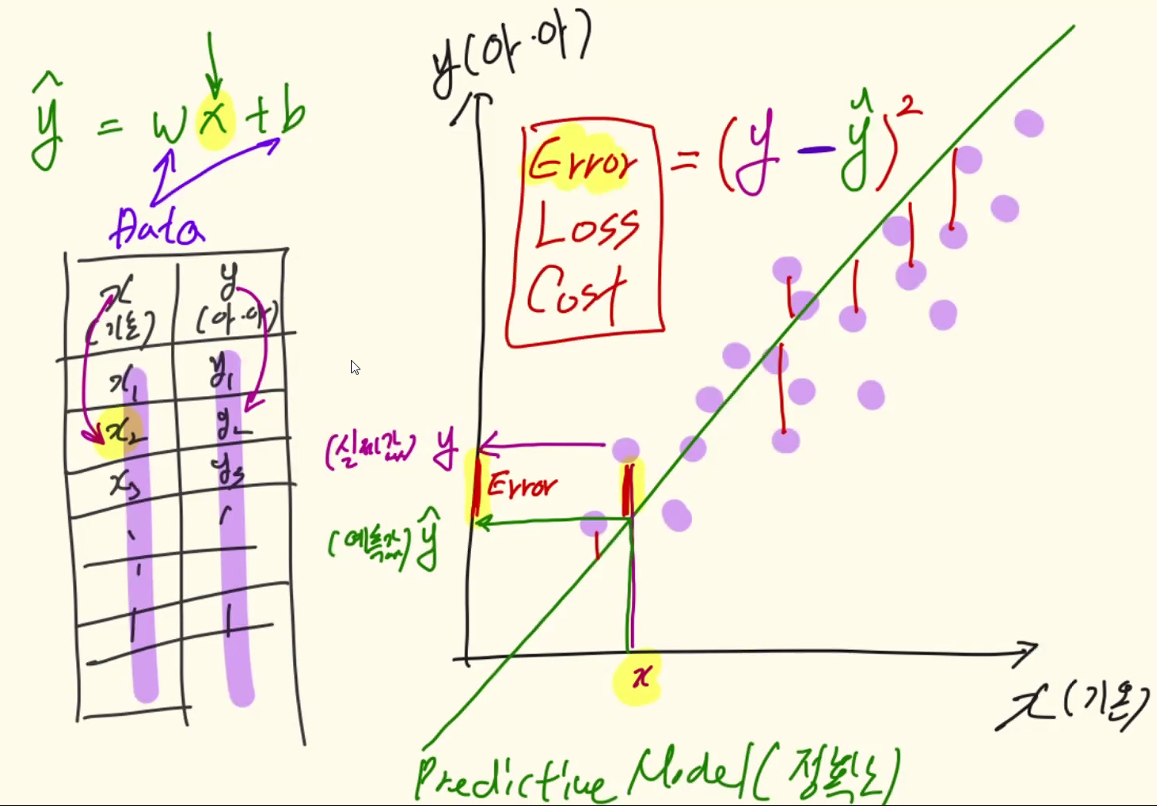 ŷ = wx + b
Data
x y
(기온) (아·아)
x₁ y₁
x₂ y₂
x₃ y₃
y(아·아)
Error = (y - ŷ)²
Loss
Cost
(실제값) y
Error
(예측값) ŷ
x
x(기온)
Predictive Model(정확도)